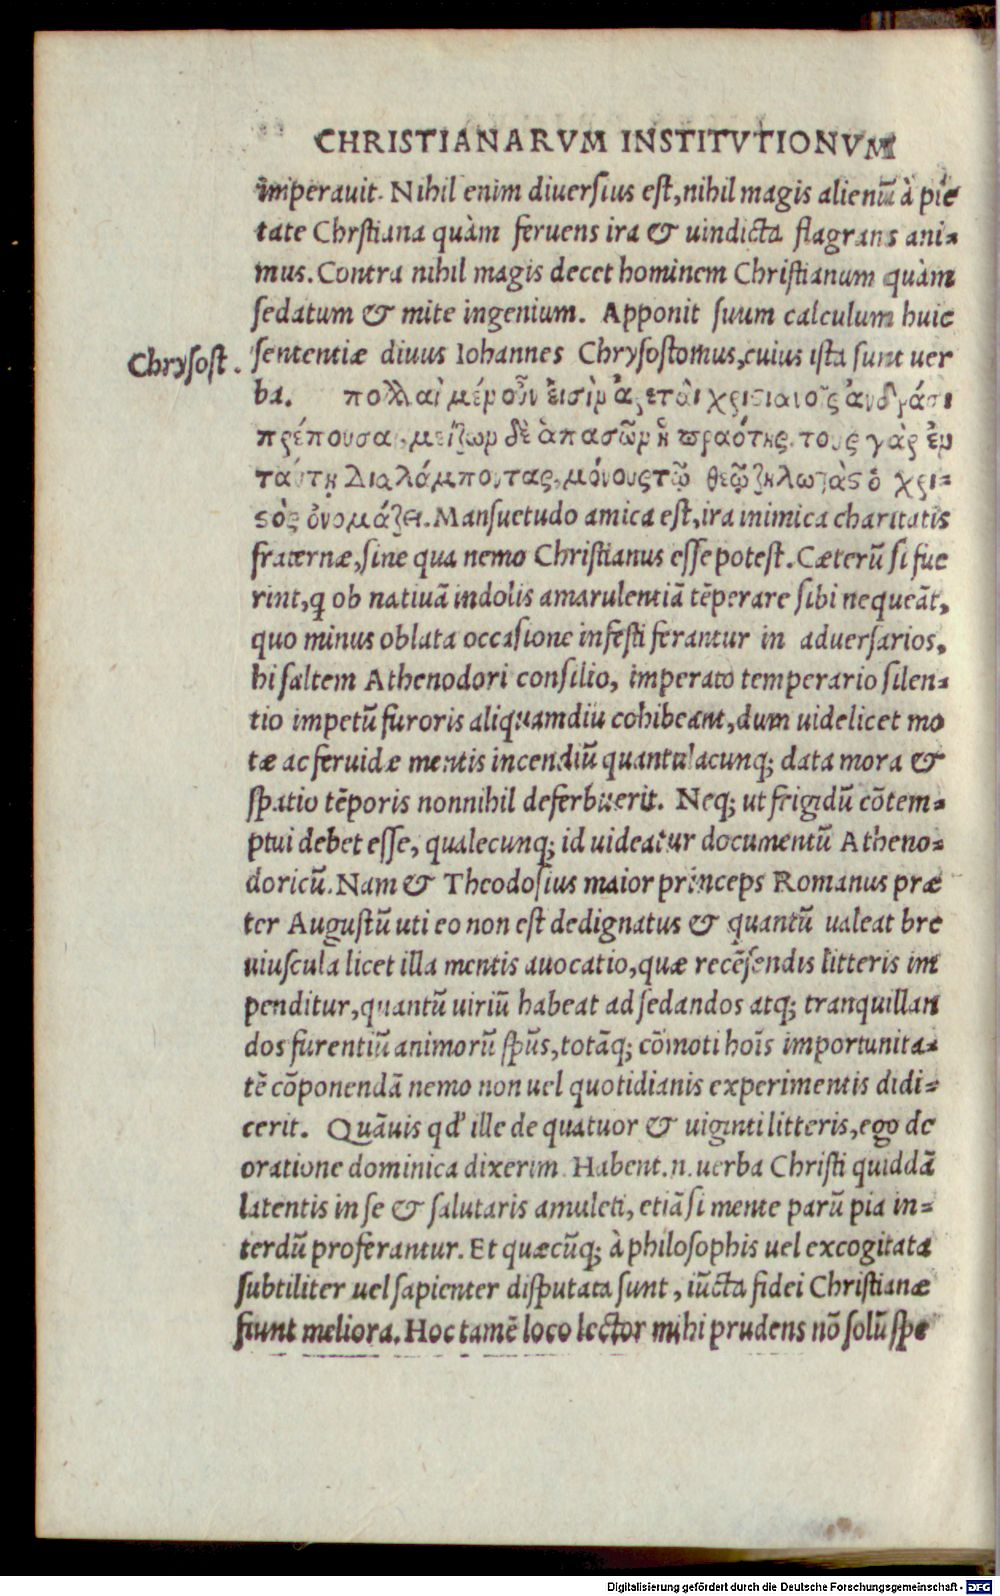 CHRISTIANARVM INSTITVTIONVM
imperauit. Nihil enim diuersius est, nihil magis alienū à pie
tate Chrstiana quàm feruens ira & uindicta flagrans ani-
mus. Contra nihil magis decet hominem Christianum quàm
sedatum & mite ingenium. Apponit suum calculum huic
Chrysost.
sententiæ diuus Iohannes Chrysostomus, cuius ista sunt uer
ba. πολλαὶ μέν οὖν εἰσὶν ἀρετὰι χριστιανοῖς ἀνδράσι
πρέπουσαι, μείζων δὲ ἁπασῶν ἡ πραότης. τους γὰρ ἐν
ταύτῃ διαλάμποντας, μόνους τῷ θεῷ ζηλωτὰς ὁ χρι-
στὸς ὀνομάζει. Mansuetudo amica est, ira inimica charitatis
fraternæ, sine qua nemo Christianus esse potest. Cæterū si fue
rint, q ob natiuā indolis amarulentiā tēperare sibi nequeāt,
quo minus oblata occasione infesti ferantur in aduersarios,
hi saltem Athenodori consilio, imperato temperario silen-
tio impetū furoris aliquamdiu cohibeant, dum uidelicet mo
tæ ac feruidæ mentis incendiū quantulacunq; data mora &
spatio tēporis nonnihil deferbuerit. Neq; ut frigidū cōtem-
ptui debet esse, qualecunq; id uideatur documentū Atheno-
doricū. Nam & Theodosius maior princeps Romanus præ
ter Augustū uti eo non est dedignatus & quantū ualeat bre
uiuscula licet illa mentis auocatio, quæ recēsendis litteris im
penditur, quantū uiriū habeat ad sedandos atq; tranquillan
dos furentiū animorū spūs, totāq; cōmoti hoīs importunita-
tē cōponendā nemo non uel quotidianis experimentis didi-
cerit. Quāuis qd' ille de quatuor & uiginti litteris, ego de
oratione dominica dixerim. Habent .n. uerba Christi quiddā
latentis in se & salutaris amuleti, etiāsi mente parū pia in-
terdū proferantur. Et quæcūq; à philosophis uel excogitata
subtiliter uel sapienter disputata sunt, iūcta fidei Christianæ
fiunt meliora. Hoc tamē loco lector mihi prudens nō solū spe
Digitalisierung gefördert durch die Deutsche Forschungsgemeinschaft - DFG